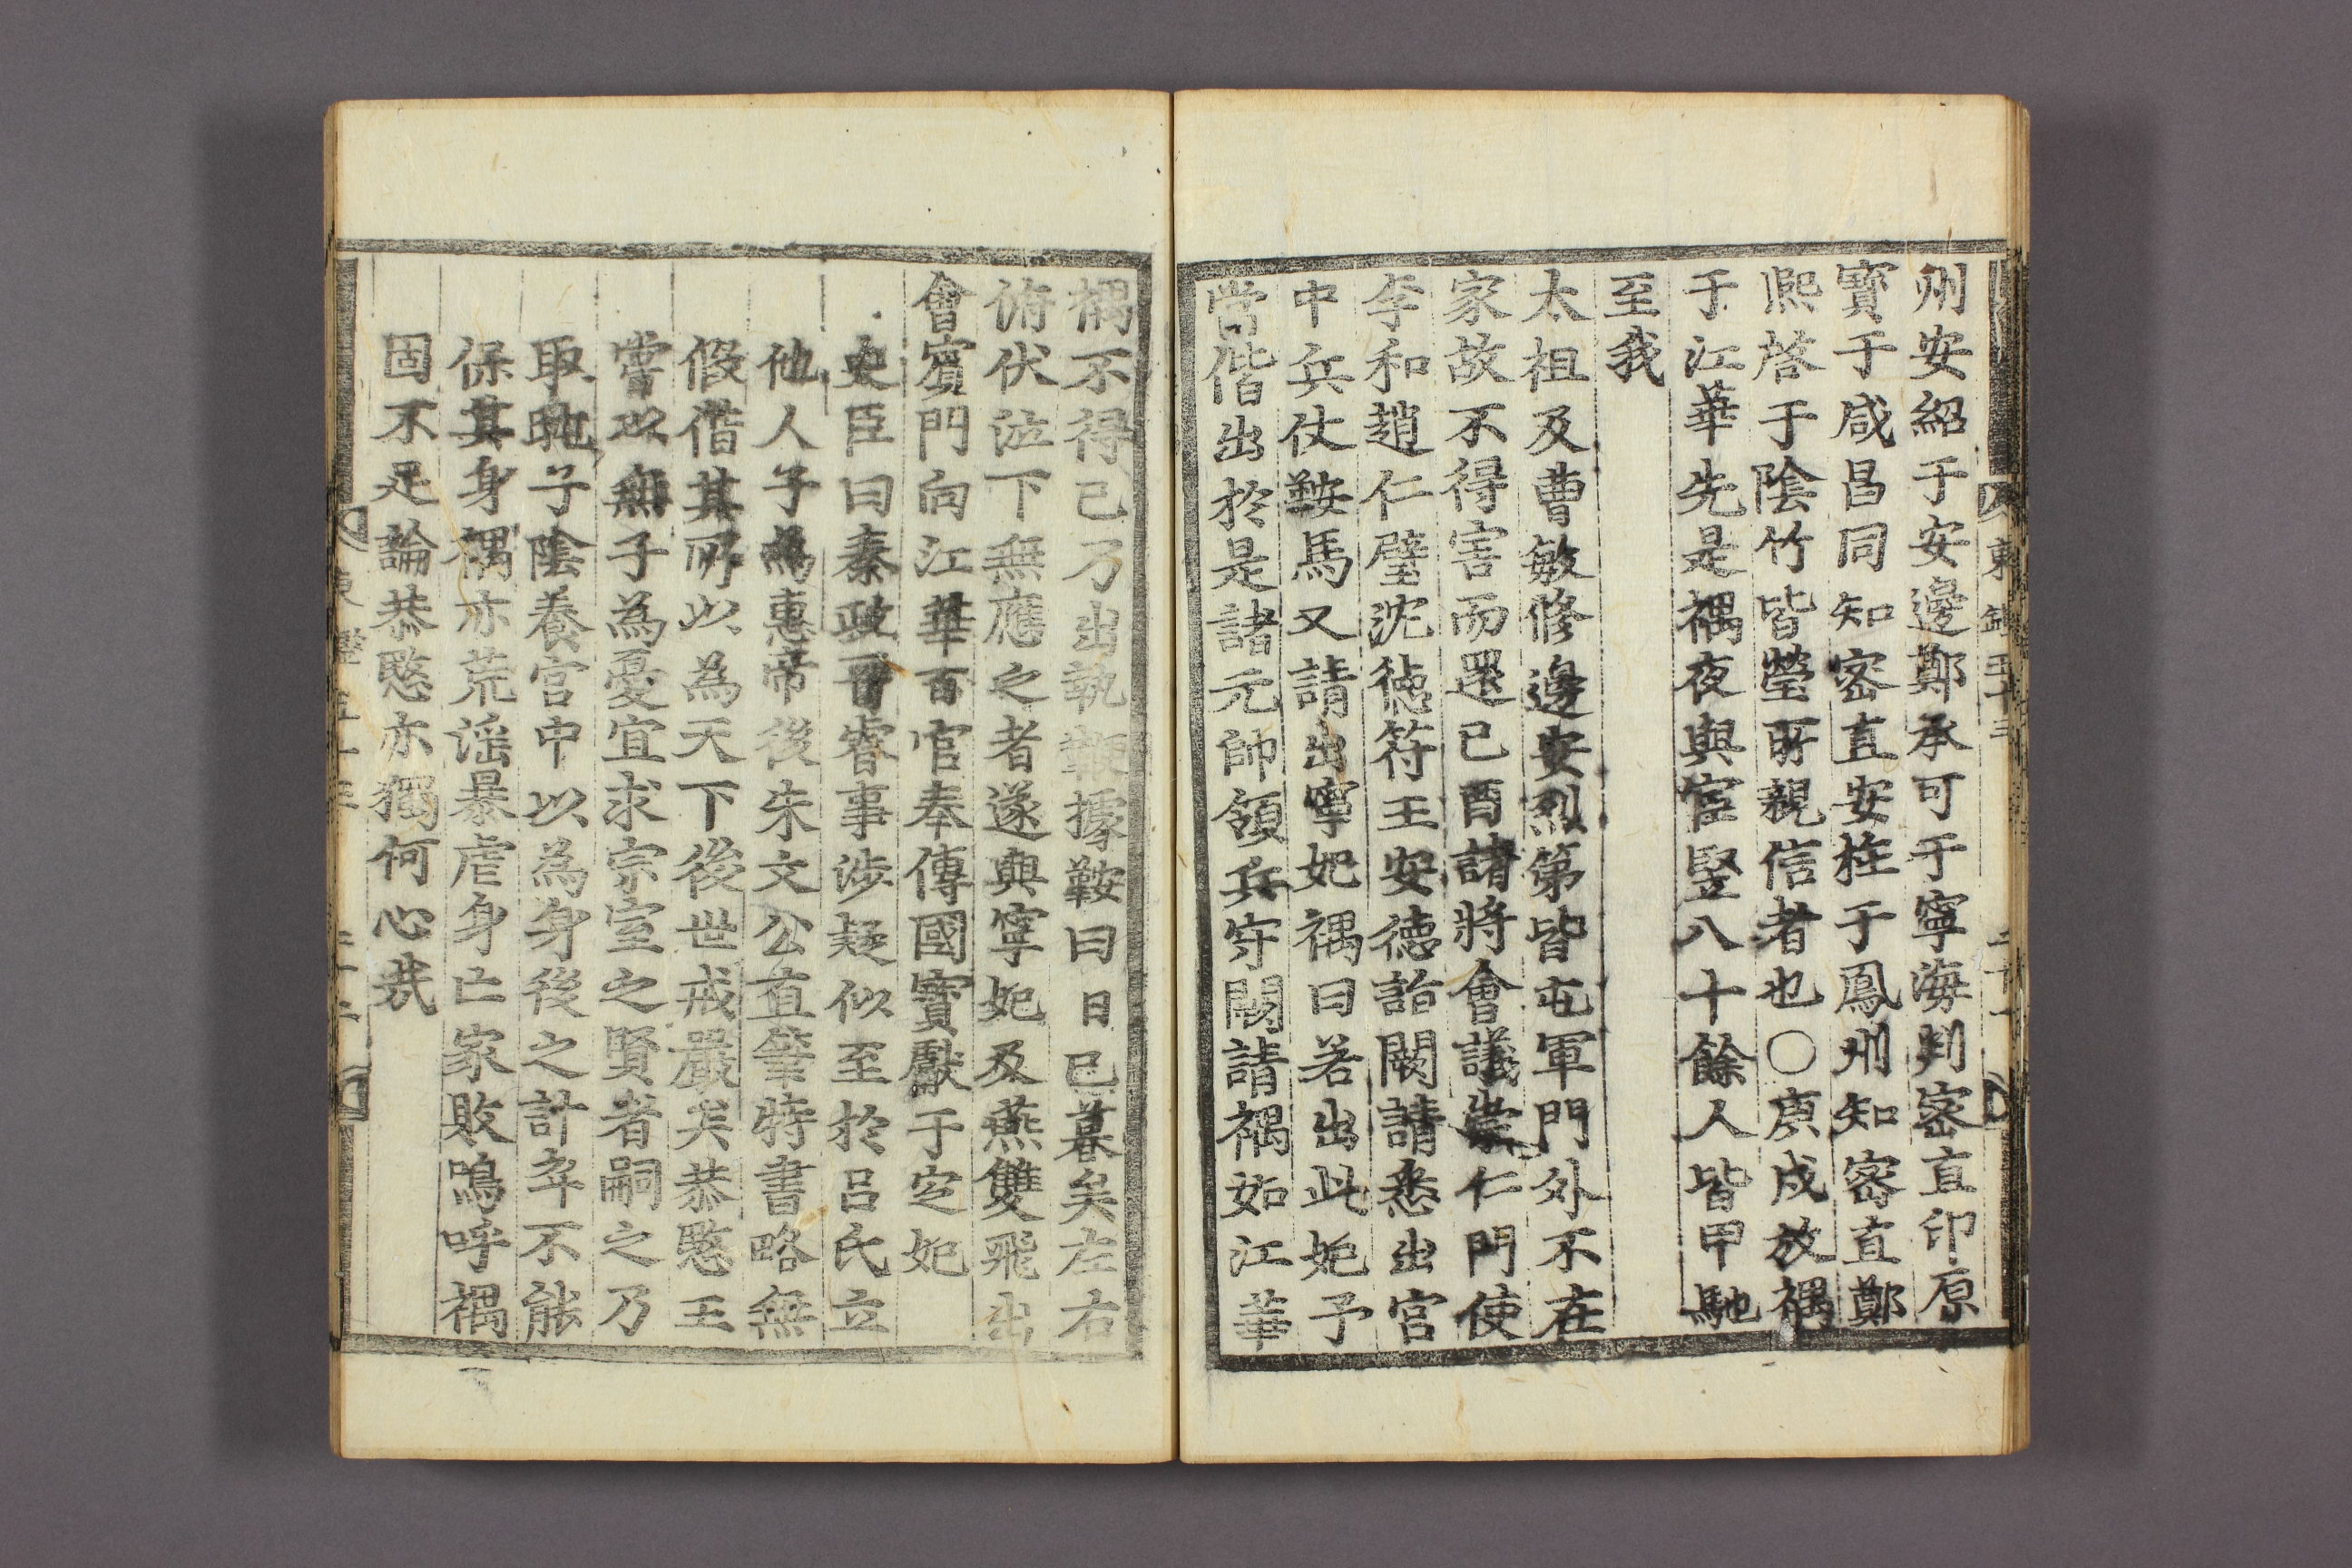 州安紹于安邊鄭承可于寧海判密直印原
寳于咸昌同知密直安柱于鳳州知密直鄭
熈啓于陰竹皆瑩所親信者也○庚戌放禑
于江華先是禑夜與宦竪八十餘人皆甲馳
至我
太祖及曹敏修邊安烈第皆屯軍門外不在
家故不得害而還己酉諸將會議崇仁門使
李和趙仁璧沈德符王安德詣闕請悉出宮
中兵仗鞍馬又請出寧妃禑曰若出此妃予
當偕出於是諸元帥領兵守闕請禑如江華
禑不得已乃出執鞭據鞍曰日已暮矣左右
俯伏泣下無應之者遂與寧妃及燕雙飛出
會賓門向江華百官奉傳國寳獻于定妃
史臣曰秦政晋睿事涉疑似至於吕氏立
他人子爲惠帝後朱文公直筆特書略無
假借其所以為天下後世戒嚴矣恭愍王
嘗以無子為憂宜求宗室之賢者嗣之乃
取旽子陰養宮中以為身後之計卒不能
保其身禑亦荒滛暴虐身亡家敗嗚呼禑
固不足論恭愍亦獨何心㢤